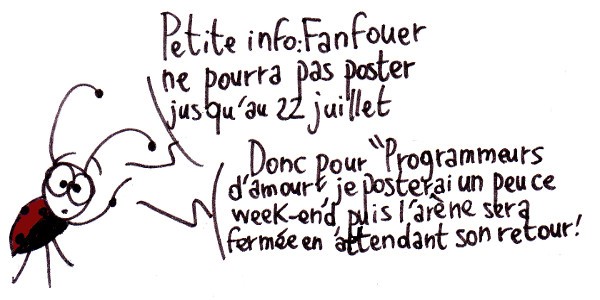 Petite info: Fanfouer
ne pourra pas poster
jusqu'au 22 juillet
Donc pour "Programmeurs
d'amour", je posterai un peu ce
week-end, puis l'arène sera
fermée en attendant son retour!